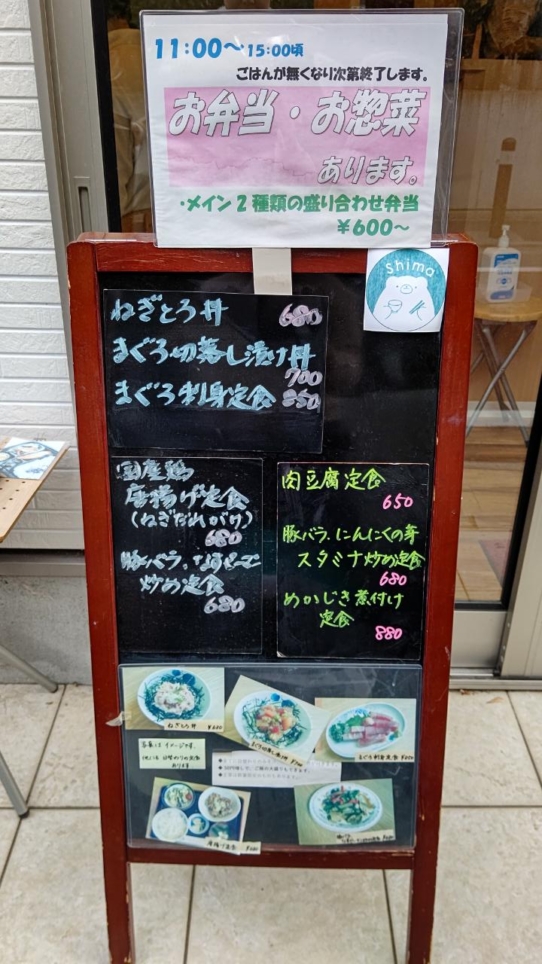 11:00〜15:00頃
ごはんが無くなり次第終了します。
お弁当・お惣菜
あります。
・メイン2種類の盛り合わせ弁当
¥600〜
Shima
ねぎとろ丼 680
まぐろ切落し漬け丼
700
まぐろ刺身定食 850
国産鶏
唐揚げ定食
(ねぎだれがけ)
680
豚バラ、
炒め定食
680
肉豆腐定食
650
豚バラ、にんにくの芽
スタミナ炒め定食
680
めかじき煮付け
定食
880
ねぎとろ丼
写真はイメージです。
まぐろ刺身定食